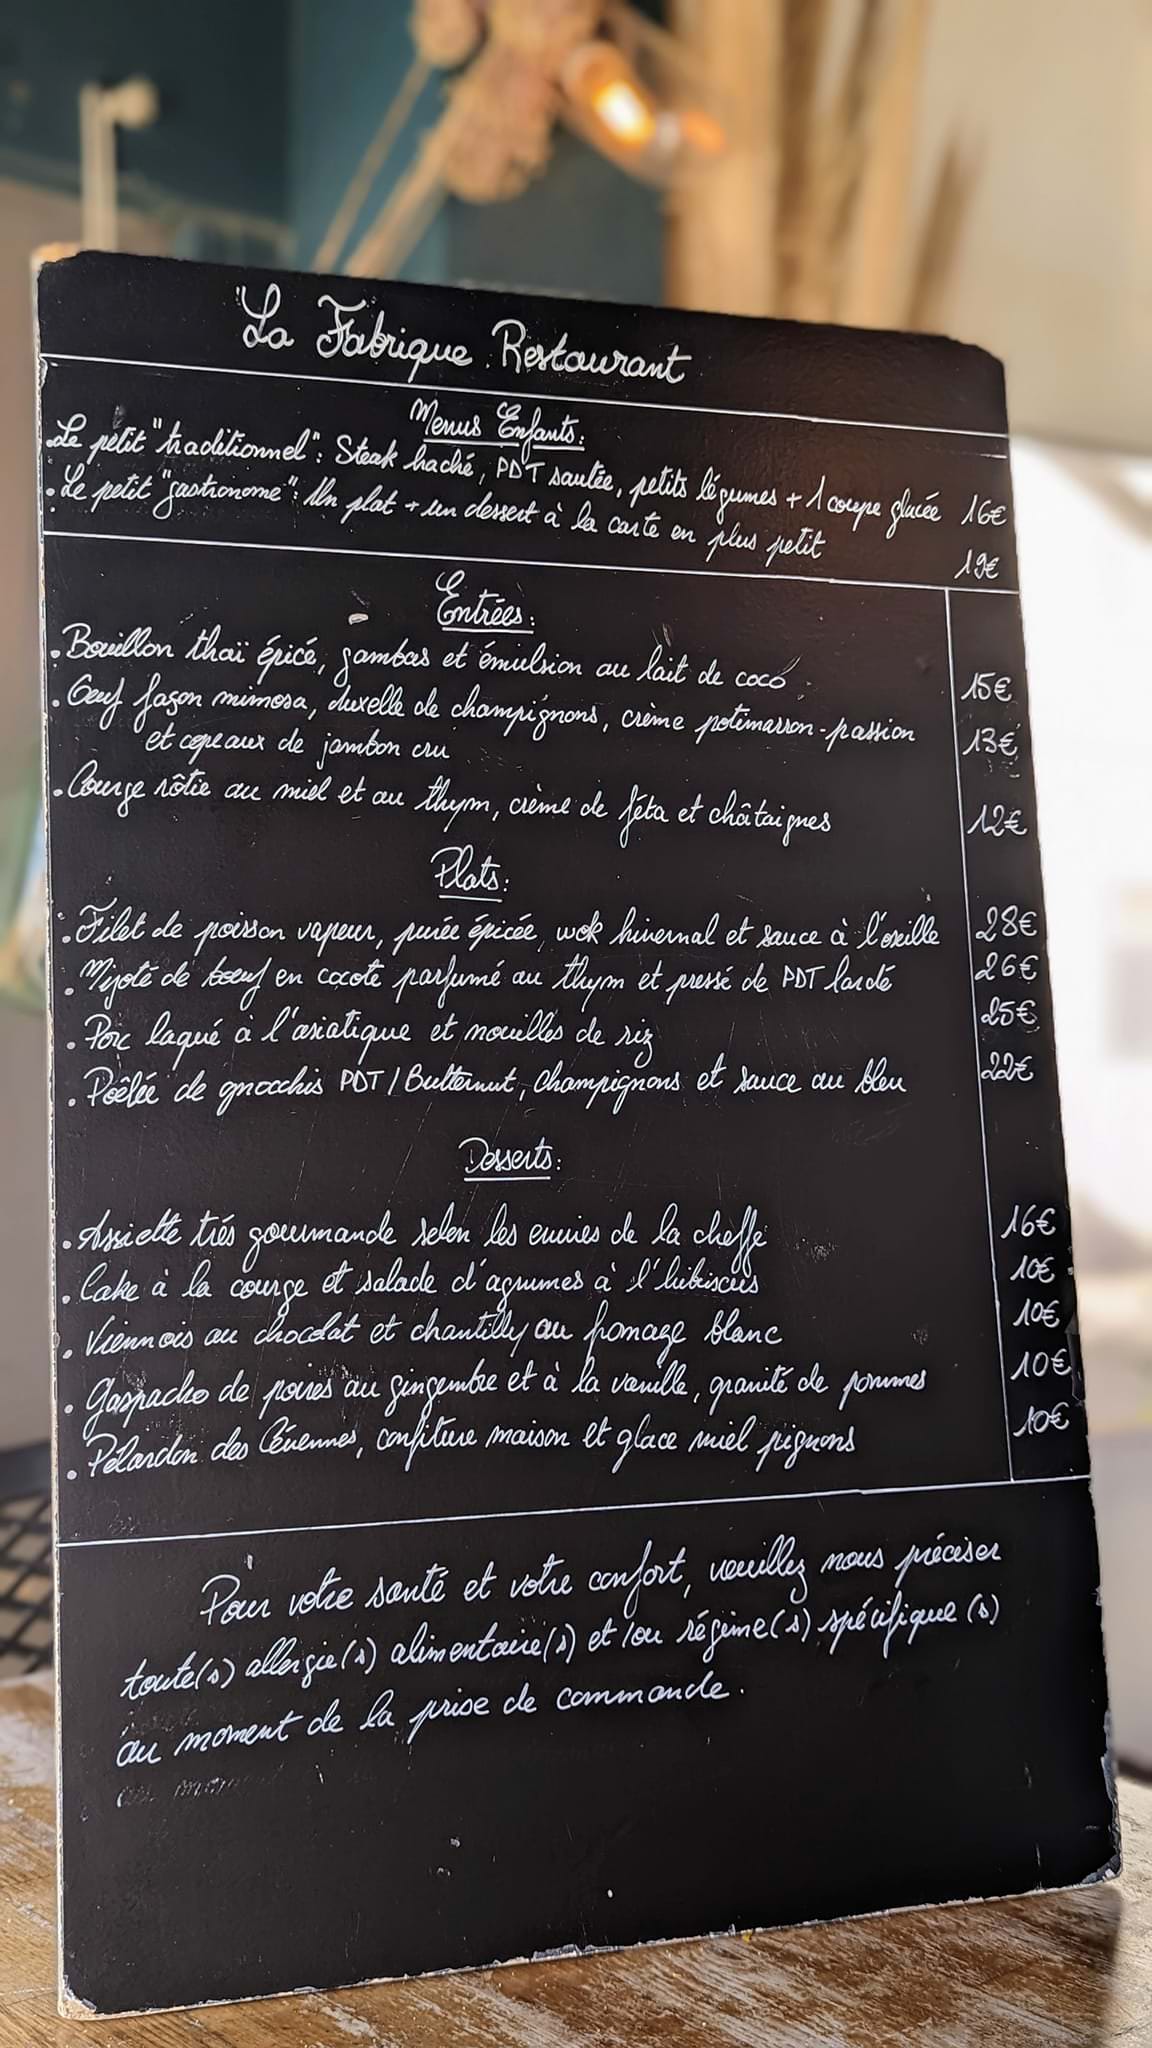 La Fabrique Restaurant
Menus Enfants:
• Le petit "traditionnel": Steak haché, PDT sautée, petits légumes + 1 coupe glacée 16€
• Le petit "gastronome": Un plat + un dessert à la carte en plus petit 19€
Entrées:
• Bouillon thaï épicé, gambas et émulsion au lait de coco 15€
• Oeuf façon mimosa, duxelle de champignons, crème potimarron-passion 13€
et copeaux de jambon cru
• Courge rôtie au miel et au thym, crème de féta et châtaignes 12€
Plats:
• Filet de poisson vapeur, purée épicée, wok hivernal et sauce à l'oseille 28€
• Mijoté de boeuf en cocote parfumé au thym et pressé de PDT lardé 26€
• Porc laqué à l'asiatique et nouilles de riz 25€
• Poêlée de gnocchis PDT/Butternut, champignons et sauce au bleu 22€
Desserts:
• Assiette très gourmande selon les envies de la cheffe 16€
• Cake à la courge et salade d'agrumes à l'hibiscus 10€
• Viennois au chocolat et chantilly au fromage blanc 10€
• Gaspacho de poires au gingembre et à la vanille, granité de pommes 10€
• Pélardon des Cévennes, confiture maison et glace miel pignons 10€
Pour votre santé et votre confort, veuillez nous préciser
toute(s) allergie(s) alimentaire(s) et/ou régime(s) spécifique(s)
au moment de la prise de commande.